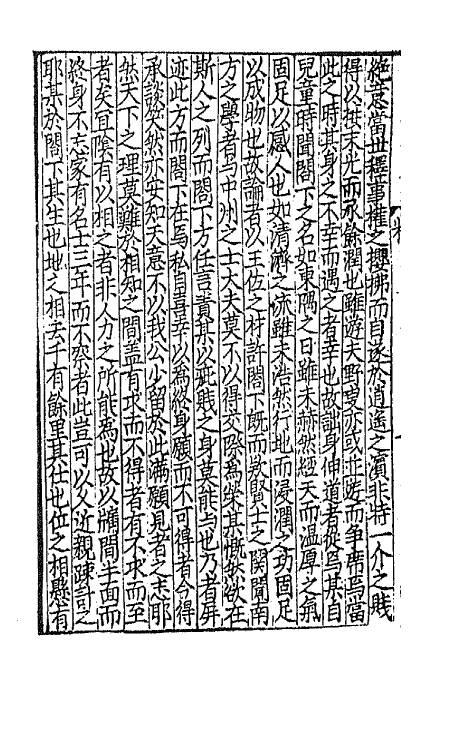 絶意當世穪事摧之擾拂而自逐於逍遥之濵非特一介之賤
得以挹末光而承餘潤也雖遊夫野叟亦或並遊而争席焉當
此之時其身之不幸而遇之者幸也故詘身伸道者從焉某自
兒童時聞閤下之名如東隅之日雖未赫然經天而温厚之氣
固足以感人也如清濟之流雖未浩然行地而浸潤之功固足
以成物也故論者以王佐之材許閤下既而敦賢士之關聞南
方之學者與中州之士大夫莫不以得交際為榮某慨然欲在
斯人之列而閤下方任言責某以疵賤之身莫能与也乃者屏
迹此方而閤下在焉私自喜幸以為終身願而不可得者今得
承談笑然亦安知天意不以我公少留於此滿願見者之志耶
然天下之理莫難於相知之間盖有求而不得者有不求而至
者矣冝隂有以相之者非人力之所能為也故以牖間士面而
終身不忘家有名士三年而不察者此豈可以久近親踈計之
耶某於閤下其生也地之相去千有餘里其仕也位之相懸有